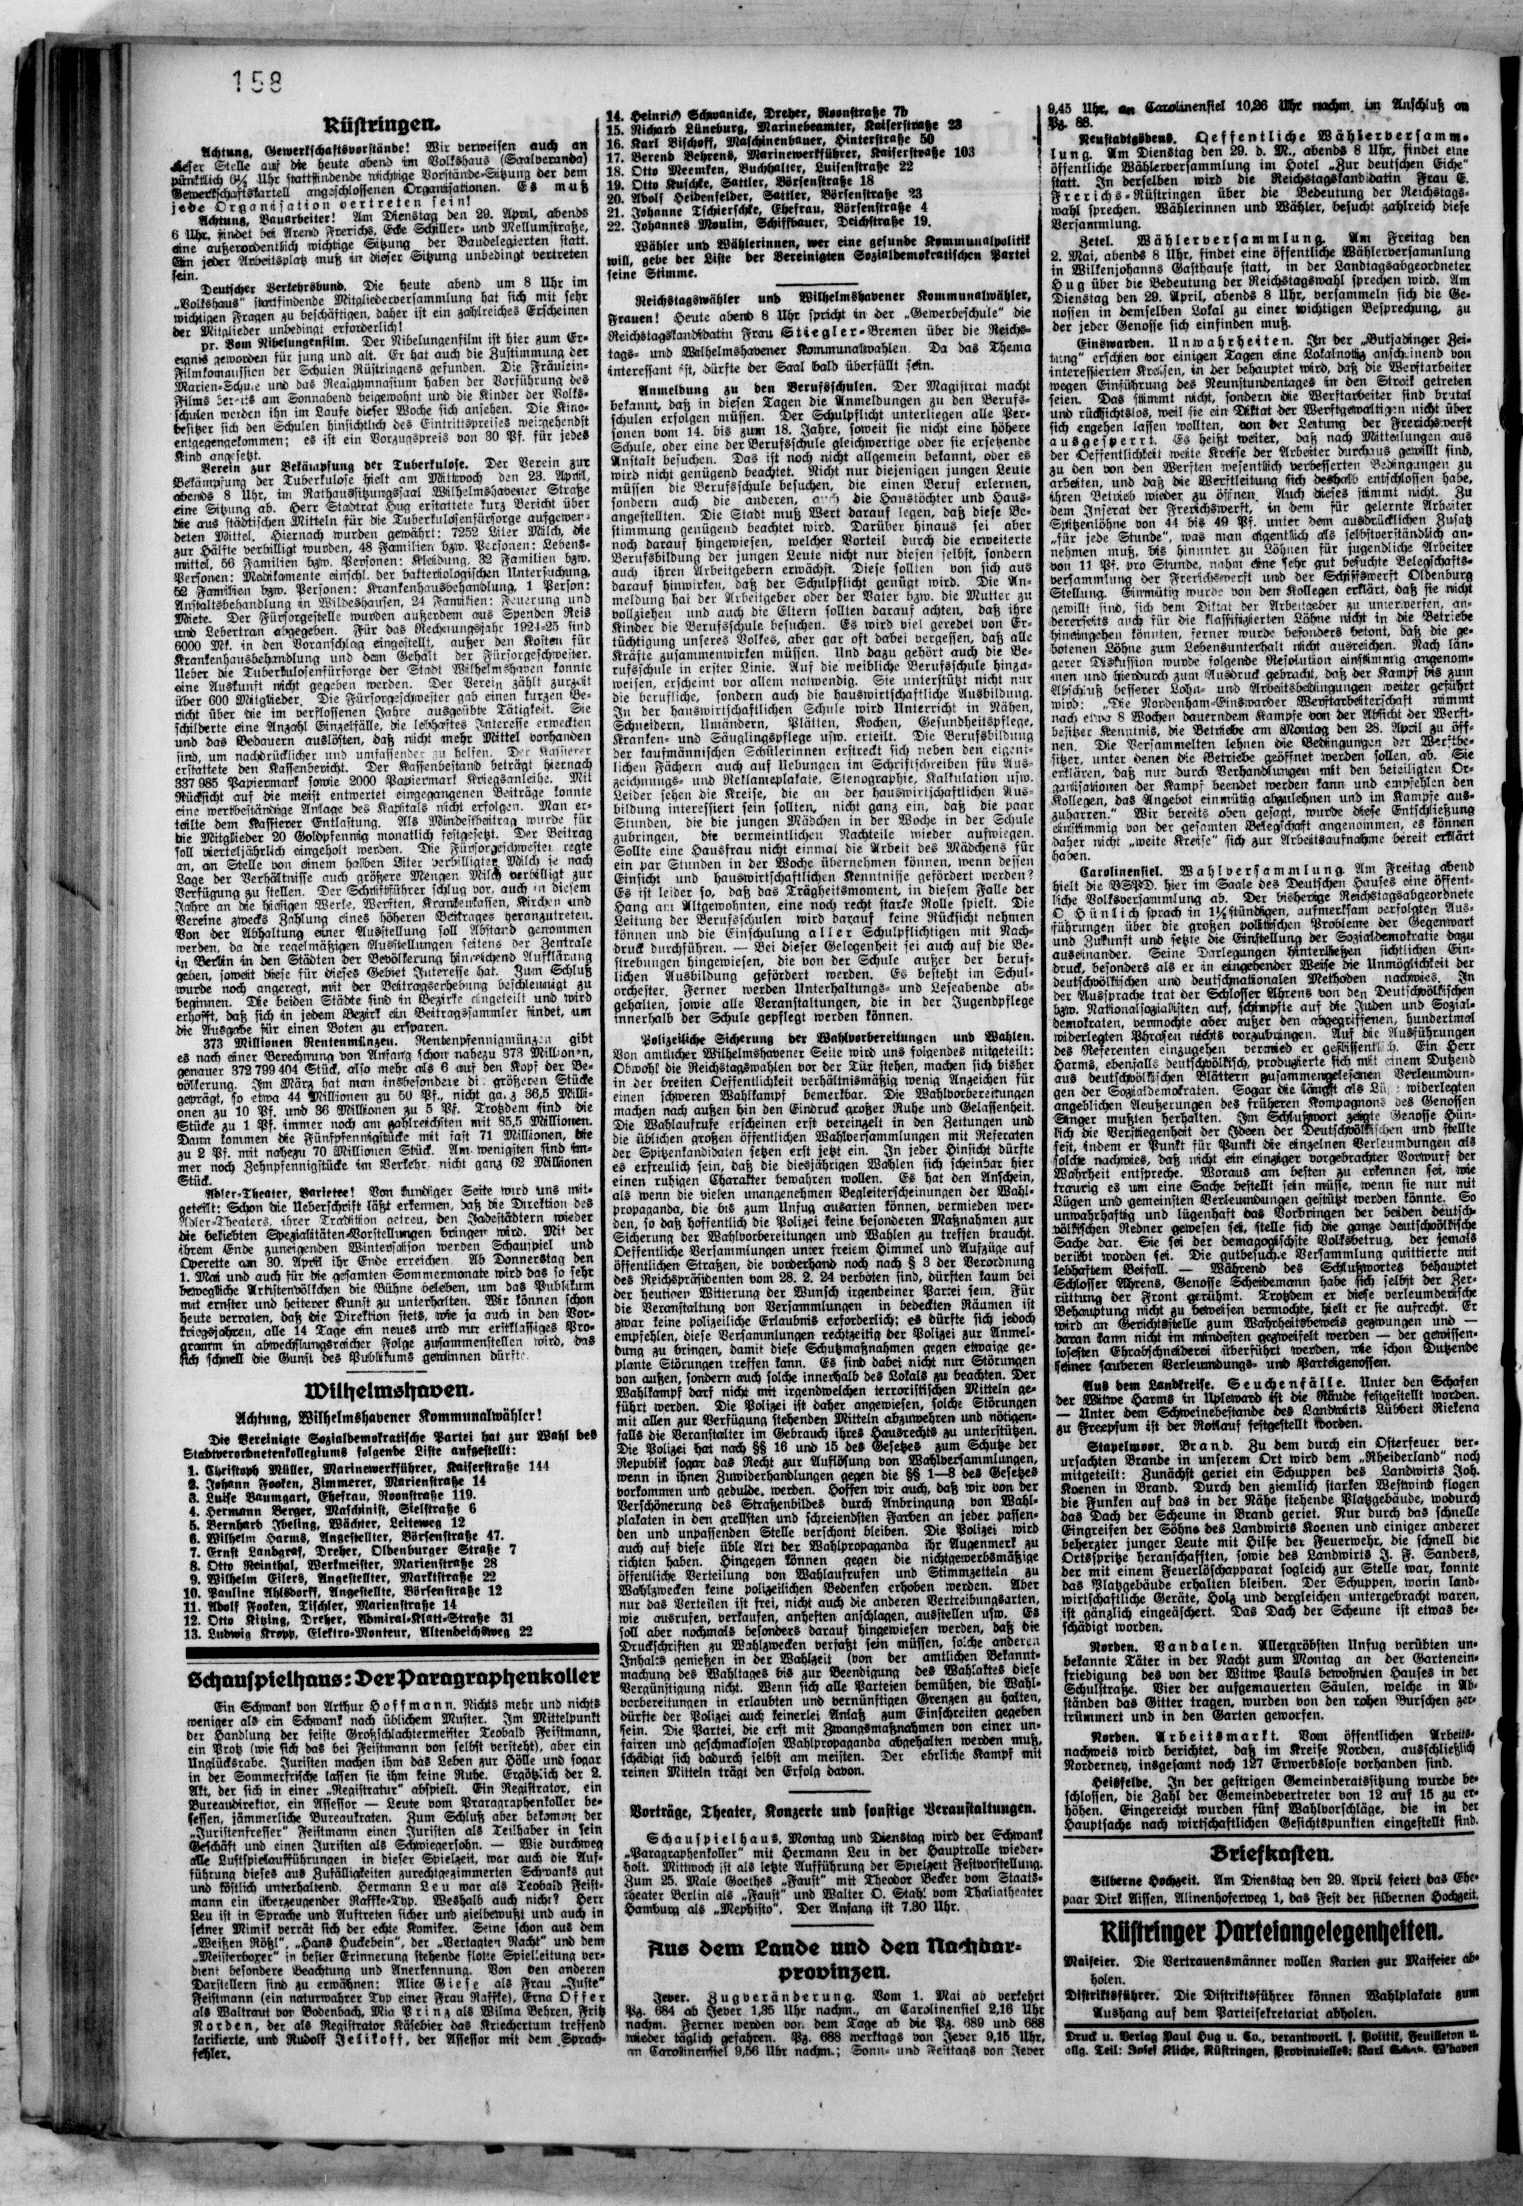 158
Rüstringen.
Achtung, Gewerkschaftsvorstände! Wir verweisen auch an
dieser Stelle auf die heute abend im Volkshaus (Saalveranda)
pünktlich 6¼ Uhr stattfindende wichtige Vorstände-Sitzung der dem
Gewerkschaftskartell angeschlossenen Organisationen. Es muß
jede Organisation vertreten sein!
Achtung, Bauarbeiter! Am Dienstag den 29. April, abends
6 Uhr, findet bei Arend Frerichs, Ecke Schiller- und Mellumstraße,
eine außerordentlich wichtige Sitzung der Baudelegierten statt.
Ein jeder Arbeitsplatz muß in dieser Sitzung unbedingt vertreten
sein.
Deutscher Verkehrsbund. Die heute abend um 8 Uhr im
„Volkshaus" stattfindende Mitgliederversammlung hat sich mit sehr
wichtigen Fragen zu beschäftigen, daher ist ein zahlreiches Erscheinen
der Mitglieder unbedingt erforderlich!
pr. Vom Nibelungenfilm. Der Nibelungenfilm ist hier zum Er-
eignis geworden für jung und alt. Er hat auch die Zustimmung der
Filmkommission der Schulen Rüstringens gefunden. Die Fräulein-
Marien-Schule und das Realgymnasium haben der Vorführung des
Films bereits am Sonnabend beigewohnt und die Kinder der Volks-
schulen werden ihn im Laufe dieser Woche sich ansehen. Die Kino-
besitzer sich den Schulen hinsichtlich des Eintrittspreises weitgehendst
entgegengekommen; es ist ein Vorzugspreis von 30 Pf. für jedes
Kind angesetzt.
Verein zur Bekämpfung der Tuberkulose. Der Verein zur
Bekämpfung der Tuberkulose hielt am Mittwoch den 23. April,
abends 8 Uhr, im Rathaussitzungssaal Wilhelmshavener Straße
eine Sitzung ab. Herr Stadtrat Hug erstattete kurz Bericht über
die aus städtischen Mitteln für die Tuberkulosenfürsorge aufgewen-
deten Mittel. Hiernach wurden gewährt: 7252 Liter Milch, die
zur Hälfte verbilligt wurden, 48 Familien bzw. Personen: Lebens-
mittel, 56 Familien bzw. Personen: Kleidung, 32 Familien bzw.
Personen: Medikamente einschl. der bakteriologischen Untersuchung,
52 Familien bzw. Personen: Krankenhausbehandlung, 1 Person:
Anstaltsbehandlung in Wildeshausen, 24 Familien: Feuerung und
Miete. Der Fürsorgestelle wurden außerdem aus Spenden Reis
und Lebertran abgegeben. Für das Rechnungsjahr 1924-25 sind
6000 Mk. in den Voranschlag eingestellt, außer den Kosten für
Krankenhausbehandlung und dem Gehalt der Fürsorgeschwester.
Ueber die Tuberkulosenfürsorge der Stadt Wilhelmshaven konnte
eine Auskunft nicht gegeben werden. Der Verein zählt zurzeit
über 600 Mitglieder. Die Fürsorgeschwester gab einen kurzen Be-
richt über die im verflossenen Jahre ausgeübte Tätigkeit. Sie
schilderte eine Anzahl Einzelfälle, die lebhaftes Interesse erweckten
und das Bedauern auslösten, daß nicht mehr Mittel vorhanden
sind, um nachdrücklicher und umfassender zu helfen. Der Kassierer
erstattete den Kassenbericht. Der Kassenbestand beträgt hiernach
337 985 Papiermark sowie 2000 Papiermark Kriegsanleihe. Mit
Rücksicht auf die meist entwertet eingegangenen Beiträge konnte
eine wertbeständige Anlage des Kapitals nicht erfolgen. Man er-
teilte dem Kassierer Entlastung. Als Mindestbeitrag wurde für
die Mitglieder 20 Goldpfennig monatlich festgesetzt. Der Beitrag
soll vierteljährlich eingeholt werden. Die Fürsorgeschwester regte
an, an Stelle von einem halben Liter verbilligter Milch je nach
Lage der Verhältnisse auch größere Mengen Milch verbilligt zur
Verfügung zu stellen. Der Schriftführer schlug vor, auch in diesem
Jahre an die hiesigen Werke, Werften, Krankenkassen, Kirchen und
Vereine zwecks Zahlung eines höheren Beitrages heranzutreten.
Von der Abhaltung einer Ausstellung soll Abstand genommen
werden, da die regelmäßigen Ausstellungen seitens der Zentrale
in Berlin in den Städten der Bevölkerung hinreichend Aufklärung
geben, soweit diese für dieses Gebiet Interesse hat. Zum Schluß
wurde noch angeregt, mit der Beitragserhebung beschleunigt zu
beginnen. Die beiden Städte sind in Bezirke eingeteilt und wird
erhofft, daß sich in jedem Bezirk ein Beitragssammler findet, um
die Ausgabe für einen Boten zu ersparen.
373 Millionen Rentenmünzen. Rentenpfennigmünzen gibt
es nach einer Berechnung von Anfang schon nahezu 373 Millionen,
genauer 372 799 404 Stück, also mehr als 6 auf den Kopf der Be-
völkerung. Im März hat man insbesondere die größeren Stücke
geprägt, so etwa 44 Millionen zu 50 Pf., nicht ganz 36,5 Milli-
onen zu 10 Pf. und 36 Millionen zu 5 Pf. Trotzdem sind die
Stücke zu 1 Pf. immer noch am zahlreichsten mit 85,5 Millionen.
Dann kommen die Fünfpfennigstücke mit fast 71 Millionen, die
zu 2 Pf. mit nahezu 70 Millionen Stück. Am wenigsten sind im-
mer noch Zehnpfennigstücke im Verkehr, nicht ganz 62 Millionen
Stück.
Adler-Theater, Varietee! Von kundiger Seite wird uns mit-
geteilt: Schon die Ueberschrift läßt erkennen, daß die Direktion des
Adler-Theaters, ihrer Tradition getreu, den Jadestädtern wieder
die beliebten Spezialitäten-Vorstellungen bringen wird. Mit der
ihrem Ende zuneigenden Wintersaison werden Schauspiel und
Operette am 30. April ihr Ende erreichen. Ab Donnerstag den
1. Mai und auch für die gesamten Sommermonate wird das so sehr
bewegliche Artistenvölkchen die Bühne beleben, um das Publikum
mit ernster und heiterer Kunst zu unterhalten. Wir können schon
heute verraten, daß die Direktion stets, wie ja auch in den Vor-
kriegsjahren, alle 14 Tage ein neues und nur erstklassiges Pro-
gramm in abwechslungsreicher Folge zusammenstellen wird, das
sich schnell die Gunst des Publikums gewinnen dürfte.
Wilhelmshaven.
Achtung, Wilhelmshavener Kommunalwähler!
Die Vereinigte Sozialdemokratische Partei hat zur Wahl des
Stadtverordnetenkollegiums folgende Liste aufgestellt:
1. Christoph Müller, Marinewerkführer, Kaiserstraße 144
2. Johann Fooken, Zimmerer, Marienstraße 14
3. Luise Baumgart, Ehefrau, Roonstraße 119.
4. Hermann Berger, Maschinist, Sielstraße 6
5. Bernhard Ibeling, Wächter, Leiteweg 12
6. Wilhelm Harms, Angestellter, Börsenstraße 47.
7. Ernst Landgraf, Dreher, Oldenburger Straße 7
8. Otto Reinthal, Werkmeister, Marienstraße 28
9. Wilhelm Eilers, Angestellter, Marktstraße 22
10. Pauline Ahlsdorff, Angestellte, Börsenstraße 12
11. Adolf Fooken, Tischler, Marienstraße 14
12. Otto Kitzing, Dreher, Admiral-Klatt-Straße 31
13. Ludwig Kropp, Elektro-Monteur, Altendeichsweg 22
Schauspielhaus: Der Paragraphenkoller
Ein Schwank von Arthur Hoffmann. Nichts mehr und nichts
weniger als ein Schwank nach üblichem Muster. Im Mittelpunkt
der Handlung der feiste Großschlachtermeister Teobald Feistmann,
ein Protz (wie sich das bei Feistmann von selbst versteht), aber ein
Unglücksrabe. Juristen machen ihm das Leben zur Hölle und sogar
in der Sommerfrische lassen sie ihm keine Ruhe. Ergötzlich der 2.
Akt, der sich in einer „Registratur" abspielt. Ein Registrator, ein
Bureaudirektor, ein Assessor — Leute vom Praragraphenkoller be-
sessen, jämmerliche Bureaukraten. Zum Schluß aber bekommt der
„Juristenfresser" Feistmann einen Juristen als Teilhaber in sein
Geschäft und einen Juristen als Schwiegersohn. — Wie durchweg
alle Lustspielaufführungen in dieser Spielzeit, war auch die Auf-
führung dieses aus Zufälligkeiten zurechtgezimmerten Schwanks gut
und köstlich unterhaltend. Hermann Leu war als Teobald Feist-
mann ein überzeugender Raffke-Typ. Weshalb auch nicht? Herr
Leu ist in Sprache und Auftreten sicher und zielbewußt und auch in
seiner Mimik verrät sich der echte Komiker. Seine schon aus dem
„Weißen Rößl", „Hans Huckebein", der „Vertagten Nacht" und dem
„Meisterboxer" in bester Erinnerung stehende flotte Spielleitung ver-
dient besondere Beachtung und Anerkennung. Von den anderen
Darstellern sind zu erwähnen: Alice Giese als Frau „Juste"
Feistmann (ein naturwahrer Typ einer Frau Raffke), Erna Offer
als Waltraut vor Bodenbach, Mia Prinz als Wilma Behren, Fritz
Norden, der als Registrator Käsebier das Kriechertum treffend
karikierte, und Rudolf Jelikoff, der Assessor mit dem Sprach-
fehler.
14. Heinrich Schwanicke, Dreher, Roonstraße 7b
15. Richard Lüneburg, Marinebeamter, Kaiserstraße 23
16. Karl Bischoff, Maschinenbauer, Hinterstraße 50
17. Berend Behrens, Marinewerkführer, Kaiserstraße 103
18. Otto Meemken, Buchhalter, Luisenstraße 22
19. Otto Kuschke, Sattler, Börsenstraße 18
20. Adolf Heidenfelder, Sattler, Börsenstraße 23
21. Johanne Tschierschke, Ehefrau, Börsenstraße 4
22. Johannes Moulin, Schiffbauer, Deichstraße 19.
Wähler und Wählerinnen, wer eine gesunde Kommunalpolitik
will, gebe der Liste der Vereinigten Sozialdemokratischen Partei
seine Stimme.
Reichstagswähler und Wilhelmshavener Kommunalwähler,
Frauen! Heute abend 8 Uhr spricht in der „Gewerbeschule" die
Reichstagskandidatin Frau Stiegler-Bremen über die Reichs-
tags- und Wilhelmshavener Kommunalwahlen. Da das Thema
interessant ist, dürfte der Saal bald überfüllt sein.
Anmeldung zu den Berufsschulen. Der Magistrat macht
bekannt, daß in diesen Tagen die Anmeldungen zu den Berufs-
schulen erfolgen müssen. Der Schulpflicht unterliegen alle Per-
sonen vom 14. bis zum 18. Jahre, soweit sie nicht eine höhere
Schule, oder eine der Berufsschule gleichwertige oder sie ersetzende
Anstalt besuchen. Das ist noch nicht allgemein bekannt, oder es
wird nicht genügend beachtet. Nicht nur diejenigen jungen Leute
müssen die Berufsschule besuchen, die einen Beruf erlernen,
sondern auch die anderen, auch die Haustöchter und Haus-
angestellten. Die Stadt muß Wert darauf legen, daß diese Be-
stimmung genügend beachtet wird. Darüber hinaus sei aber
noch darauf hingewiesen, welcher Vorteil durch die erweiterte
Berufsbildung der jungen Leute nicht nur diesen selbst, sondern
auch ihren Arbeitgebern erwächst. Diese sollten von sich aus
darauf hinwirken, daß der Schulpflicht genügt wird. Die An-
meldung hat der Arbeitgeber oder der Vater bzw. die Mutter zu
vollziehen und auch die Eltern sollten darauf achten, daß ihre
Kinder die Berufsschule besuchen. Es wird viel geredet von Er-
tüchtigung unseres Volkes, aber gar oft dabei vergessen, daß alle
Kräfte zusammenwirken müssen. Und dazu gehört auch die Be-
rufsschule in erster Linie. Auf die weibliche Berufsschule hinzu-
weisen, erscheint vor allem notwendig. Sie unterstützt nicht nur
die berufliche, sondern auch die hauswirtschaftliche Ausbildung.
In der hauswirtschaftlichen Schule wird Unterricht in Nähen,
Schneidern, Umändern, Plätten, Kochen, Gesundheitspflege,
Kranken- und Säuglingspflege usw. erteilt. Die Berufsbildung
der kaufmännischen Schülerinnen erstreckt sich neben den eigent-
lichen Fächern auch auf Uebungen im Schriftschreiben für Aus-
zeichnungs- und Reklameplakate, Stenographie, Kalkulation usw.
Leider sehen die Kreise, die an der hauswirtschaftlichen Aus-
bildung interessiert sein sollten, nicht ganz ein, daß die paar
Stunden, die die jungen Mädchen in der Woche in der Schule
zubringen, die vermeintlichen Nachteile wieder aufwiegen.
Sollte eine Hausfrau nicht einmal die Arbeit des Mädchens für
ein par Stunden in der Woche übernehmen können, wenn dessen
Einsicht und hauswirtschaftlichen Kenntnisse gefördert werden?
Es ist leider so, daß das Trägheitsmoment, in diesem Falle der
Hang am Altgewohnten, eine noch recht starke Rolle spielt. Die
Leitung der Berufsschulen wird darauf keine Rücksicht nehmen
können und die Einschulung aller Schulpflichtigen mit Nach-
druck durchführen. — Bei dieser Gelegenheit sei auch auf die Be-
strebungen hingewiesen, die von der Schule außer der beruf-
lichen Ausbildung gefördert werden. Es besteht im Schul-
orchester. Ferner werden Unterhaltungs- und Leseabende ab-
gehalten, sowie alle Veranstaltungen, die in der Jugendpflege
innerhalb der Schule gepflegt werden können.
Polizeiliche Sicherung der Wahlvorbereitungen und Wahlen.
Von amtlicher Wilhelmshavener Seite wird uns folgendes mitgeteilt:
Obwohl die Reichstagswahlen vor der Tür stehen, machen sich bisher
in der breiten Oeffentlichkeit verhältnismäßig wenig Anzeichen für
einen schweren Wahlkampf bemerkbar. Die Wahlvorbereitungen
machen nach außen hin den Eindruck großer Ruhe und Gelassenheit.
Die Wahlaufrufe erscheinen erst vereinzelt in den Zeitungen und
die üblichen großen öffentlichen Wahlversammlungen mit Referaten
der Spitzenkandidaten setzen erst jetzt ein. In jeder Hinsicht dürfte
es erfreulich sein, daß die diesjährigen Wahlen sich scheinbar hier
einen ruhigen Charakter bewahren wollen. Es hat den Anschein,
als wenn die vielen unangenehmen Begleiterscheinungen der Wahl-
propaganda, die bis zum Unfug ausarten können, vermieden wer-
den, so daß hoffentlich die Polizei keine besonderen Maßnahmen zur
Sicherung der Wahlvorbereitungen und Wahlen zu treffen braucht.
Oeffentliche Versammlungen unter freiem Himmel und Aufzüge auf
öffentlichen Straßen, die vorderhand noch nach § 3 der Verordnung
des Reichspräsidenten vom 28. 2. 24 verboten sind, dürften kaum bei
der heutigen Witterung der Wunsch irgendeiner Partei sein. Für
die Veranstaltung von Versammlungen in bedeckten Räumen ist
zwar keine polizeiliche Erlaubnis erforderlich; es dürfte sich jedoch
empfehlen, diese Versammlungen rechtzeitig der Polizei zur Anmel-
dung zu bringen, damit diese Schutzmaßnahmen gegen etwaige ge-
plante Störungen treffen kann. Es sind dabei nicht nur Störungen
von außen, sondern auch solche innerhalb des Lokals zu beachten. Der
Wahlkampf darf nicht mit irgendwelchen terroristischen Mitteln ge-
führt werden. Die Polizei ist daher angewiesen, solche Störungen
mit allen zur Verfügung stehenden Mitteln abzuwehren und nötigen-
falls die Veranstalter im Gebrauch ihres Hausrechts zu unterstützen.
Die Polizei hat nach §§ 16 und 15 des Gesetzes zum Schutze der
Republik sogar das Recht zur Auflösung von Wahlversammlungen,
wenn in ihnen Zuwiderhandlungen gegen die §§ 1—8 des Gesetzes
vorkommen und geduldet werden. Hoffen wir auch, daß wir von der
Verschönerung des Straßenbildes durch Anbringung von Wahl-
plakaten in den grellsten und schreiendsten Farben an jeder passen-
den und unpassenden Stelle verschont bleiben. Die Polizei wird
auch auf diese üble Art der Wahlpropaganda ihr Augenmerk zu
richten haben. Hingegen können gegen die nichtgewerbsmäßige
öffentliche Verteilung von Wahlaufrufen und Stimmzetteln zu
Wahlzwecken keine polizeilichen Bedenken erhoben werden. Aber
nur das Verteilen ist frei, nicht auch die anderen Vertreibungsarten,
wie ausrufen, verkaufen, anheften anschlagen, ausstellen usw. Es
soll aber nochmals besonders darauf hingewiesen werden, daß die
Druckschriften zu Wahlzwecken verfaßt sein müssen, solche anderen
Inhalts genießen in der Wahlzeit (von der amtlichen Bekannt-
machung des Wahltages bis zur Beendigung des Wahlaktes diese
Vergünstigung nicht. Wenn sich alle Parteien bemühen, die Wahl-
vorbereitungen in erlaubten und vernünftigen Grenzen zu halten,
dürfte der Polizei auch keinerlei Anlaß zum Einschreiten gegeben
sein. Die Partei, die erst mit Zwangsmaßnahmen von einer un-
fairen und geschmacklosen Wahlpropaganda abgehalten werden muß,
schädigt sich dadurch selbst am meisten. Der ehrliche Kampf mit
reinen Mitteln trägt den Erfolg davon.
Vorträge, Theater, Konzerte und sonstige Veranstaltungen.
Schauspielhaus. Montag und Dienstag wird der Schwank
„Paragraphenkoller" mit Hermann Leu in der Hauptrolle wieder-
holt. Mittwoch ist als letzte Aufführung der Spielzeit Festvorstellung.
Zum 25. Male Goethes „Faust" mit Theodor Becker vom Staats-
theater Berlin als „Faust" und Walter O. Stahl vom Thaliatheater
Hamburg als „Mephisto". Der Anfang ist 7.30 Uhr.
Aus dem Lande und den Nachbar-
provinzen.
Jever. Zugveränderung. Vom 1. Mai ab verkehrt
Pz. 684 ab Jever 1,35 Uhr nachm., an Carolinensiel 2,16 Uhr
nachm. Ferner werden von dem Tage ab die Pz. 689 und 688
wieder täglich gefahren. Pz. 688 werktags von Jever 9,15 Uhr,
an Carolinensiel 9,56 Uhr nachm.; Sonn- und Festtags von Jever
9,45 Uhr, an Carolinensiel 10,26 Uhr nachm. im Anschluß an
Pz. 88.
Neustadtgödens. Oeffentliche Wählerversamm-
lung. Am Dienstag den 29. d. M., abends 8 Uhr, findet eine
öffentliche Wählerversammlung im Hotel „Zur deutschen Eiche"
statt. In derselben wird die Reichstagskandidatin Frau E.
Frerichs-Rüstringen über die Bedeutung der Reichstags-
wahl sprechen. Wählerinnen und Wähler, besucht zahlreich diese
Versammlung.
Zetel. Wählerversammlung. Am Freitag den
2. Mai, abends 8 Uhr, findet eine öffentliche Wählerversammlung
in Wilkenjohanns Gasthause statt, in der Landtagsabgeordneter
Hug über die Bedeutung der Reichstagswahl sprechen wird. Am
Dienstag den 29. April, abends 8 Uhr, versammeln sich die Ge-
nossen in demselben Lokal zu einer wichtigen Besprechung, zu
der jeder Genosse sich einfinden muß.
Einswarden. Unwahrheiten. In der „Butjadinger Zei-
tung" erschien vor einigen Tagen eine Lokalnotiz anscheinend von
interessierten Kreisen, in der behauptet wird, daß die Werftarbeiter
wegen Einführung des Neunstundentages in den Streik getreten
seien. Das stimmt nicht, sondern die Werftarbeiter sind brutal
und rücksichtslos, weil sie ein Diktat der Werftgewaltigen nicht über
sich ergehen lassen wollten, von der Leitung der Frerichswerft
ausgesperrt. Es heißt weiter, daß nach Mitteilungen aus
der Oeffentlichkeit weite Kreise der Arbeiter durchaus gewillt sind,
zu den von den Werften wesentlich verbesserten Bedingungen zu
arbeiten, und daß die Werftleitung sich deshalb entschlossen habe,
ihren Betrieb wieder zu öffnen. Auch dieses stimmt nicht. Zu
dem Inserat der Frerichswerft, in dem für gelernte Arbeiter
Spitzenlöhne von 44 bis 49 Pf. unter dem ausdrücklichen Zusatz
„für jede Stunde", was man eigentlich als selbstverständlich an-
nehmen muß, bis hinunter zu Löhnen für jugendliche Arbeiter
von 11 Pf. pro Stunde, nahm eine sehr gut besuchte Belegschafts-
versammlung der Frerichswerft und der Schiffswerft Oldenburg
Stellung. Einmütig wurde von den Kollegen erklärt, daß sie nicht
gewillt sind, sich dem Diktat der Arbeitgeber zu unterwerfen, an-
dererseits auch für die klassifizierten Löhne nicht in die Betriebe
hineingehen könnten, ferner wurde besonders betont, daß die ge-
botenen Löhne zum Lebensunterhalt nicht ausreichen. Nach län-
gerer Diskussion wurde folgende Resolution einstimmig angenom-
men und hierdurch zum Ausdruck gebracht, daß der Kampf bis zum
Abschluß besserer Lohn- und Arbeitsbedingungen weiter geführt
wird: „Die Nordenham-Einswarder Werftarbeiterschaft nimmt
nach etwa 8 Wochen dauerndem Kampfe von der Absicht der Werft-
besitzer Kenntnis, die Betriebe am Montag den 28. April zu öff-
nen. Die Versammelten lehnen die Bedingungen der Werftbe-
sitzer, unter denen die Betriebe geöffnet werden sollen, ab. Sie
erklären, daß nur durch Verhandlungen mit den beteiligten Or-
ganisationen der Kampf beendet werden kann und empfehlen den
Kollegen, das Angebot einmütig abzulehnen und im Kampfe aus-
zuharren." Wir bereits oben gesagt, wurde diese Entschließung
einstimmig von der gesamten Belegschaft angenommen, es können
daher nicht „weite Kreise" sich zur Arbeitsaufnahme bereit erklärt
haben.
Carolinensiel. Wahlversammlung. Am Freitag abend
hielt die VSPD. hier im Saale des Deutschen Hauses eine öffent-
liche Volksversammlung ab. Der bisherige Reichstagsabgeordnete
O Hünlich sprach in 1½stündigen, aufmerksam verfolgten Aus-
führungen über die großen politischen Probleme der Gegenwart
und Zukunft und setzte die Einstellung der Sozialdemokratie dazu
auseinander. Seine Darlegungen hinterließen sichtlichen Ein-
druck, besonders als er in eingehender Weise die Unmöglichkeit der
deutschvölkischen und deutschnationalen Methoden nachwies. In
der Aussprache trat der Schlosser Ahrens von den Deutschvölkischen
bzw. Nationalsozialisten auf, schimpfte auf die Juden und Sozial-
demokraten, vermochte aber außer den abgegriffenen, hundertmal
widerlegten Phrasen nichts vorzubringen. Auf die Ausführungen
des Referenten einzugehen vermied er geflissentlich. Ein Herr
Harms, ebenfalls deutschvölkisch, produzierte sich mit einem Dutzend
aus deutschvölkischen Blättern zusammengelesenen Verleumdun-
gen der Sozialdemokraten. Sogar die längst als Lüge widerlegten
angeblichen Aeußerungen des früheren Kompagnons des Genossen
Singer mußten herhalten. Im Schlußwort zeigte Genosse Hün-
lich die Verstiegenheit der Ideen der Deutschvölkischen und stellte
fest, indem er Punkt für Punkt die einzelnen Verleumdungen als
solche nachwies, daß nicht ein einziger vorgebrachter Vorwurf der
Wahrheit entspreche. Woraus am besten zu erkennen sei, wie
traurig es um eine Sache bestellt sein müsse, wenn sie nur mit
Lügen und gemeinsten Verleumdungen gestützt werden könnte. So
unwahrhaftig und lügenhaft das Vorbringen der beiden deutsch-
völkischen Redner gewesen sei, stelle sich die ganze deutschvölkische
Sache dar. Sie sei der demagogischste Volksbetrug, der jemals
verübt worden sei. Die gutbesuchte Versammlung quittierte mit
lebhaftem Beifall. — Während des Schlußwortes behauptet
Schlosser Ahrens, Genosse Scheidemann habe sich selbst der Zer-
rüttung der Front gerühmt. Trotzdem er diese verleumderische
Behauptung nicht zu beweisen vermochte, hielt er sie aufrecht. Er
wird an Gerichtsstelle zum Wahrheitsbeweis gezwungen und —
daran kann nicht im mindesten gezweifelt werden — der gewissen-
losesten Ehrabschneiderei überführt werden, wie schon Dutzende
seiner sauberen Verleumdungs- und Parteigenossen.
Aus dem Landkreise. Seuchenfälle. Unter den Schafen
der Witwe Harms in Upleward ist die Räude festgestellt worden.
— Unter dem Schweinebestande des Landwirts Lübbert Riekena
zu Freepsum ist der Rotlauf festgestellt worden.
Stapelmoor. Brand. Zu dem durch ein Osterfeuer ver-
ursachten Brande in unserem Ort wird dem „Rheiderland" noch
mitgeteilt: Zunächst geriet ein Schuppen des Landwirts Joh.
Koenen in Brand. Durch den ziemlich starken Westwind flogen
die Funken auf das in der Nähe stehende Platzgebäude, wodurch
das Dach der Scheune in Brand geriet. Nur durch das schnelle
Eingreifen der Söhne des Landwirts Koenen und einiger anderer
beherzter junger Leute mit Hilfe der Feuerwehr, die schnell die
Ortsspritze heranschafften, sowie des Landwirts J. F. Sanders,
der mit einem Feuerlöschapparat sogleich zur Stelle war, konnte
das Platzgebäude erhalten bleiben. Der Schuppen, worin land-
wirtschaftliche Geräte, Holz und dergleichen untergebracht waren,
ist gänzlich eingeäschert. Das Dach der Scheune ist etwas be-
schädigt worden.
Norden. Vandalen. Allergröbsten Unfug verübten un-
bekannte Täter in der Nacht zum Montag an der Gartenein-
friedigung des von der Witwe Pauls bewohnten Hauses in der
Schulstraße. Vier der aufgemauerten Säulen, welche in Ab-
ständen das Gitter tragen, wurden von den rohen Burschen zer-
trümmert und in den Garten geworfen.
Norden. Arbeitsmarkt. Vom öffentlichen Arbeits-
nachweis wird berichtet, daß im Kreise Norden, ausschließlich
Norderney, insgesamt noch 127 Erwerbslose vorhanden sind.
Heisfelde. In der gestrigen Gemeinderatssitzung wurde be-
schlossen, die Zahl der Gemeindevertreter von 12 auf 15 zu er-
höhen. Eingereicht wurden fünf Wahlvorschläge, die in der
Hauptsache nach wirtschaftlichen Gesichtspunkten eingestellt sind.
Briefkasten.
Silberne Hochzeit. Am Dienstag den 29. April feiert das Ehe-
paar Dirk Aissen, Alinenhoferweg 1, das Fest der silbernen Hochzeit.
Rüstringer Parteiangelegenheiten.
Maifeier. Die Vertrauensmänner wollen Karten zur Maifeier ab-
holen.
Distriktsführer. Die Distriktsführer können Wahlplakate zum
Aushang auf dem Parteisekretariat abholen.
Druck u. Verlag Paul Hug u. Co., verantwortl. f. Politik, Feuilleton u.
allg. Teil: Josef Kliche, Rüstringen, Provinzielles: Karl W'haven